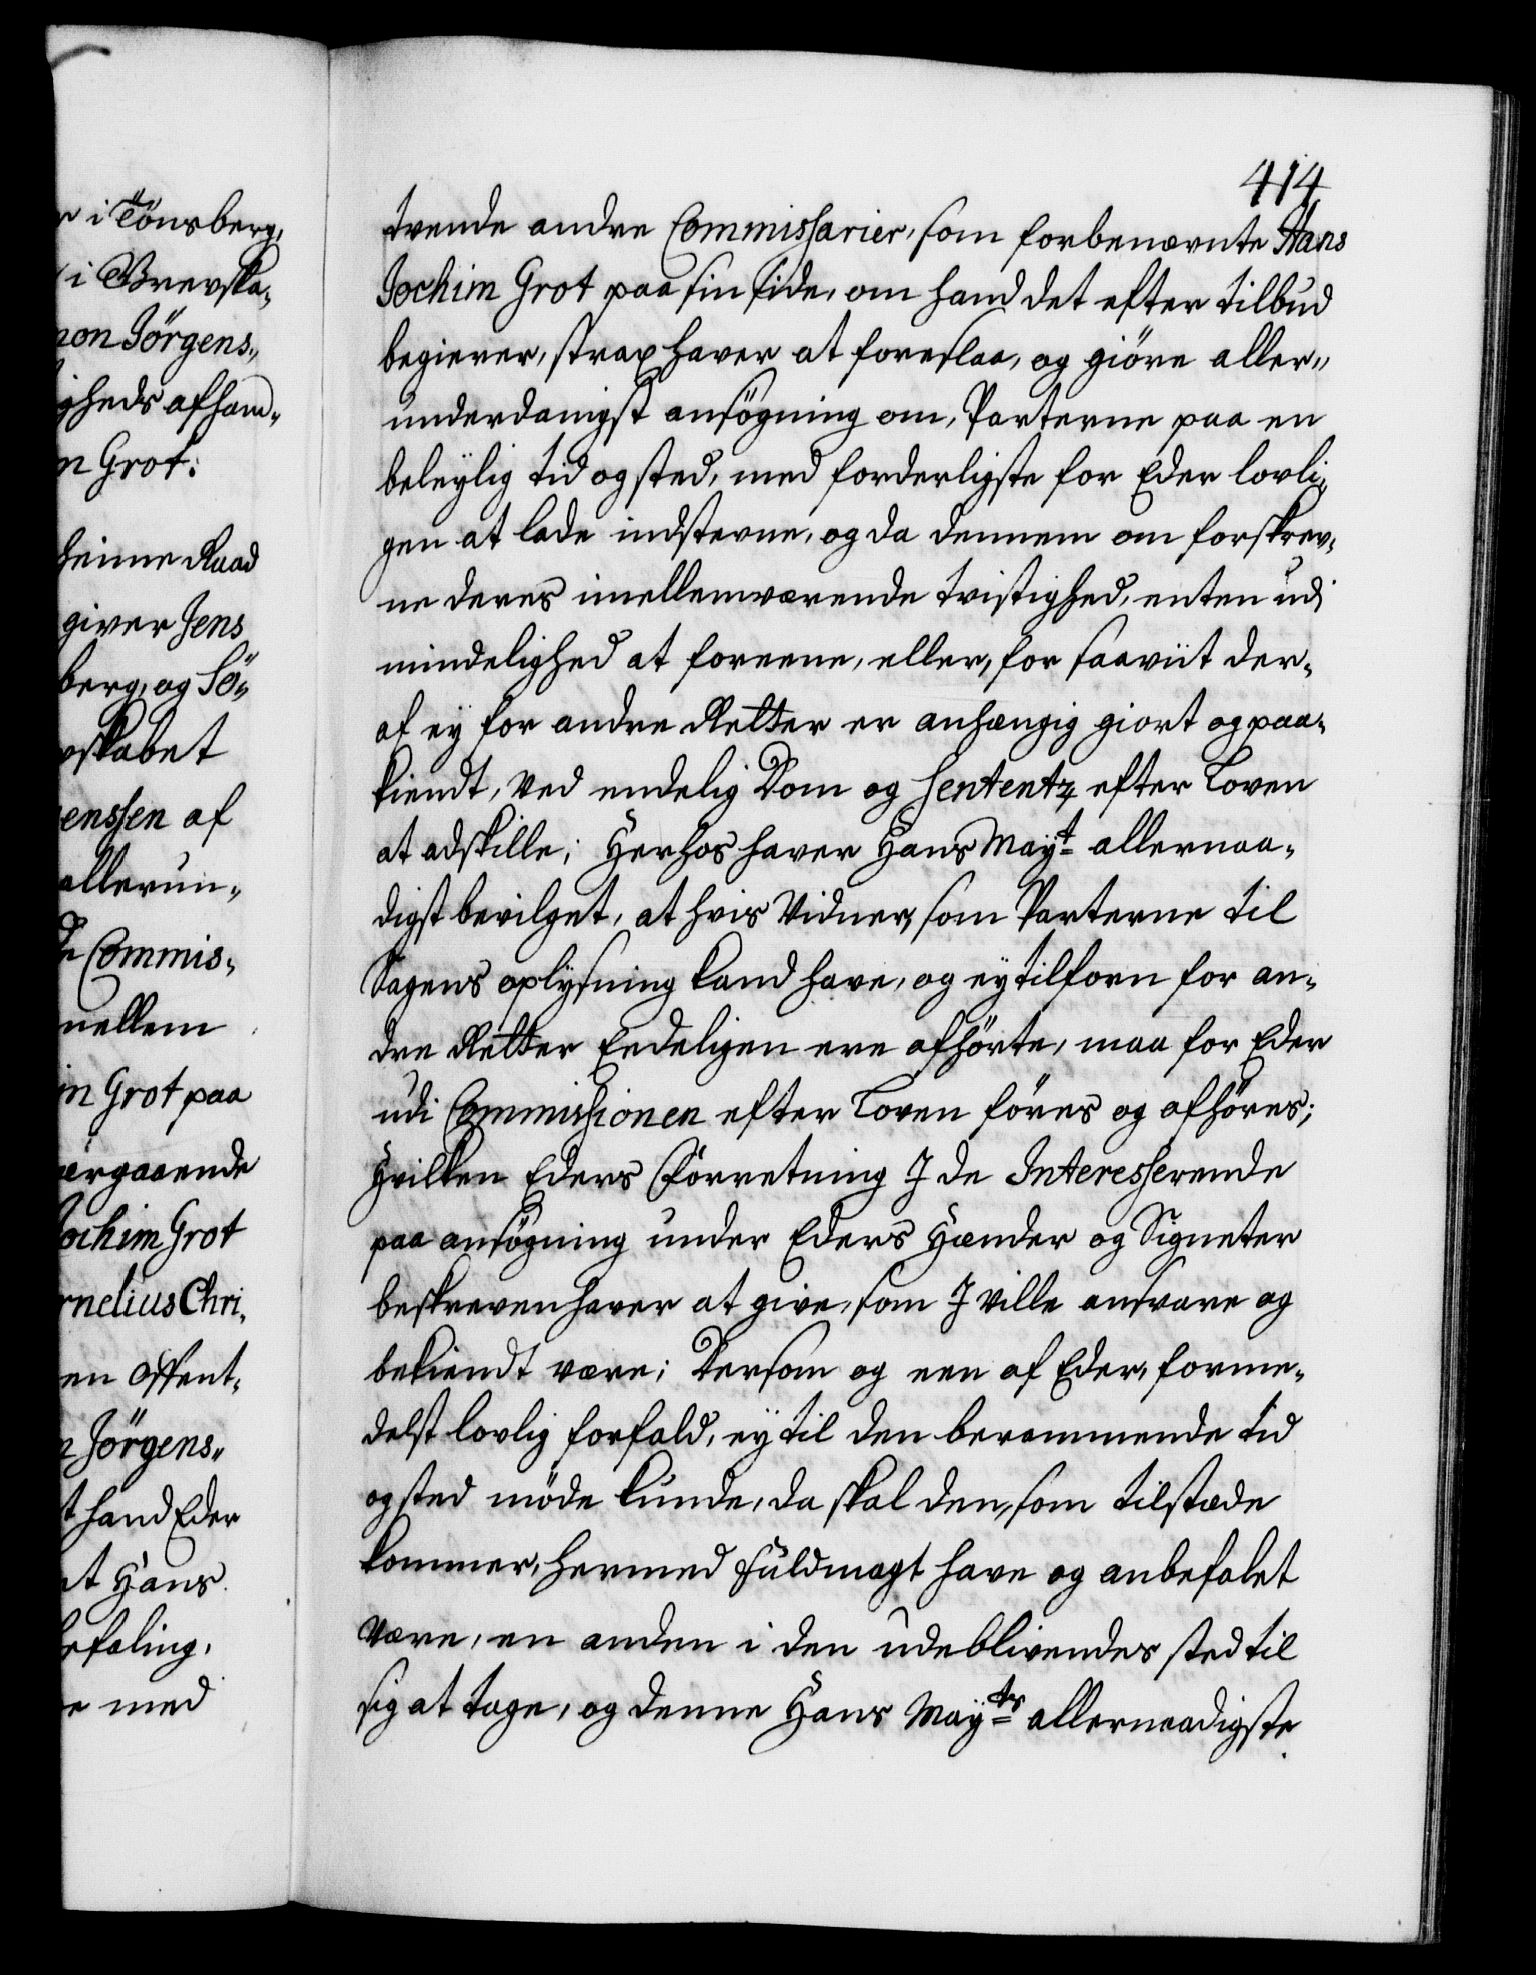 r i Tönsberg,
i Brevska-
non Jörgens,,
gheds afhan-
n Grot:
heime Raad
giver Jens
berg, og Sö,,
skabet
enssen af
allerun-
Commis-
mellem
m Grot paa
ergaaende
ochim Grot
rnelius Chri-
en offent-
n Jörgens,,
t hand Eder
at Hans
befaling,
e med
414
tvende andre Commissarier, som forbenævnte Hans
Jochim Grot paa sin side, om hand det efter tilbud
begierer, strax haver at foreslaa, og giöre aller,,
underdanigst ansögning om, Parterne paa en
beleylig tid og sted, med forderligste for Eder lovli-
gen at lade indstevne, og da dennem om forskrev-
ne deres imellemværende tvistighed, enten udi
mindelighed at foreene, eller, for saaviit der-
af ey for andre Retter er anhængig giort og paa-
kiendt, ved endelig Dom og Sententz efter Loven
at adskille; Herhos haver Hans Mayt allernaa-
digst bevilget, at hvis Vidner, som Parterne til
Sagens oplysning kand have, og ey tilforn for an-
dre Retter Eedeligen ere afhörte, maa for Eder
udi Commissionen efter Loven föres og afhöres;
Hvilken Eders Forretning J de Interesserende
paa ansögning under Eders Hænder og Signeter
beskreven haver at give, som J ville ansvare og
bekiendt være; Dersom og een af Eder, forme-
delst lovlig forfald, ey til den berammende tid
og sted möde kunde, da skal den, som tilstæde
kommer, hermed fuldmagt have og anbefalet
være, en anden i den udeblivendes sted til
sig at tage, og denne Hans Mayts allernaadigste